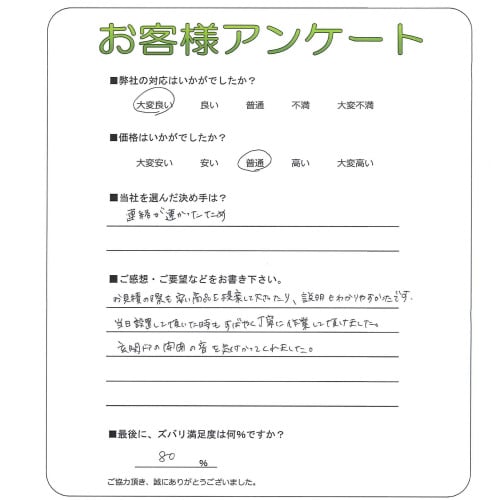 お客様アンケート
■弊社の対応はいかがでしたか？
大変良い 良い 普通 不満 大変不満
■価格はいかがでしたか？
大変安い 安い 普通 高い 大変高い
■当社を選んだ決め手は？
連絡が速かったため
■ご感想・ご要望などをお書き下さい。
お見積の際も安い商品を提案して下さったり、説明もわかりやすかたです。
当日設置して頂いた時もすばやく丁寧に作業して頂けました。
玄関の周囲の音を気付かってくれました。
■最後に、ズバリ満足度は何％ですか？
80 ％
ご協力頂き、誠にありがとうございました。